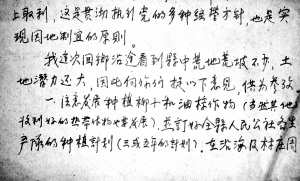 上取利，这是贯彻执行党的多种经营方针，也是实
现因地制宜的原则。
我这次回乡沿途看到县中荒地荒坡不少，土
地潜力还大，因此向你们提以下意见，供为参考
一、注意发展种植椰子和油棕作物（当然其他
收到好的热带作物也要发展），并订好全县人民公社各生
产队的种植计划（三或五年的计划），在沿海及村庄周